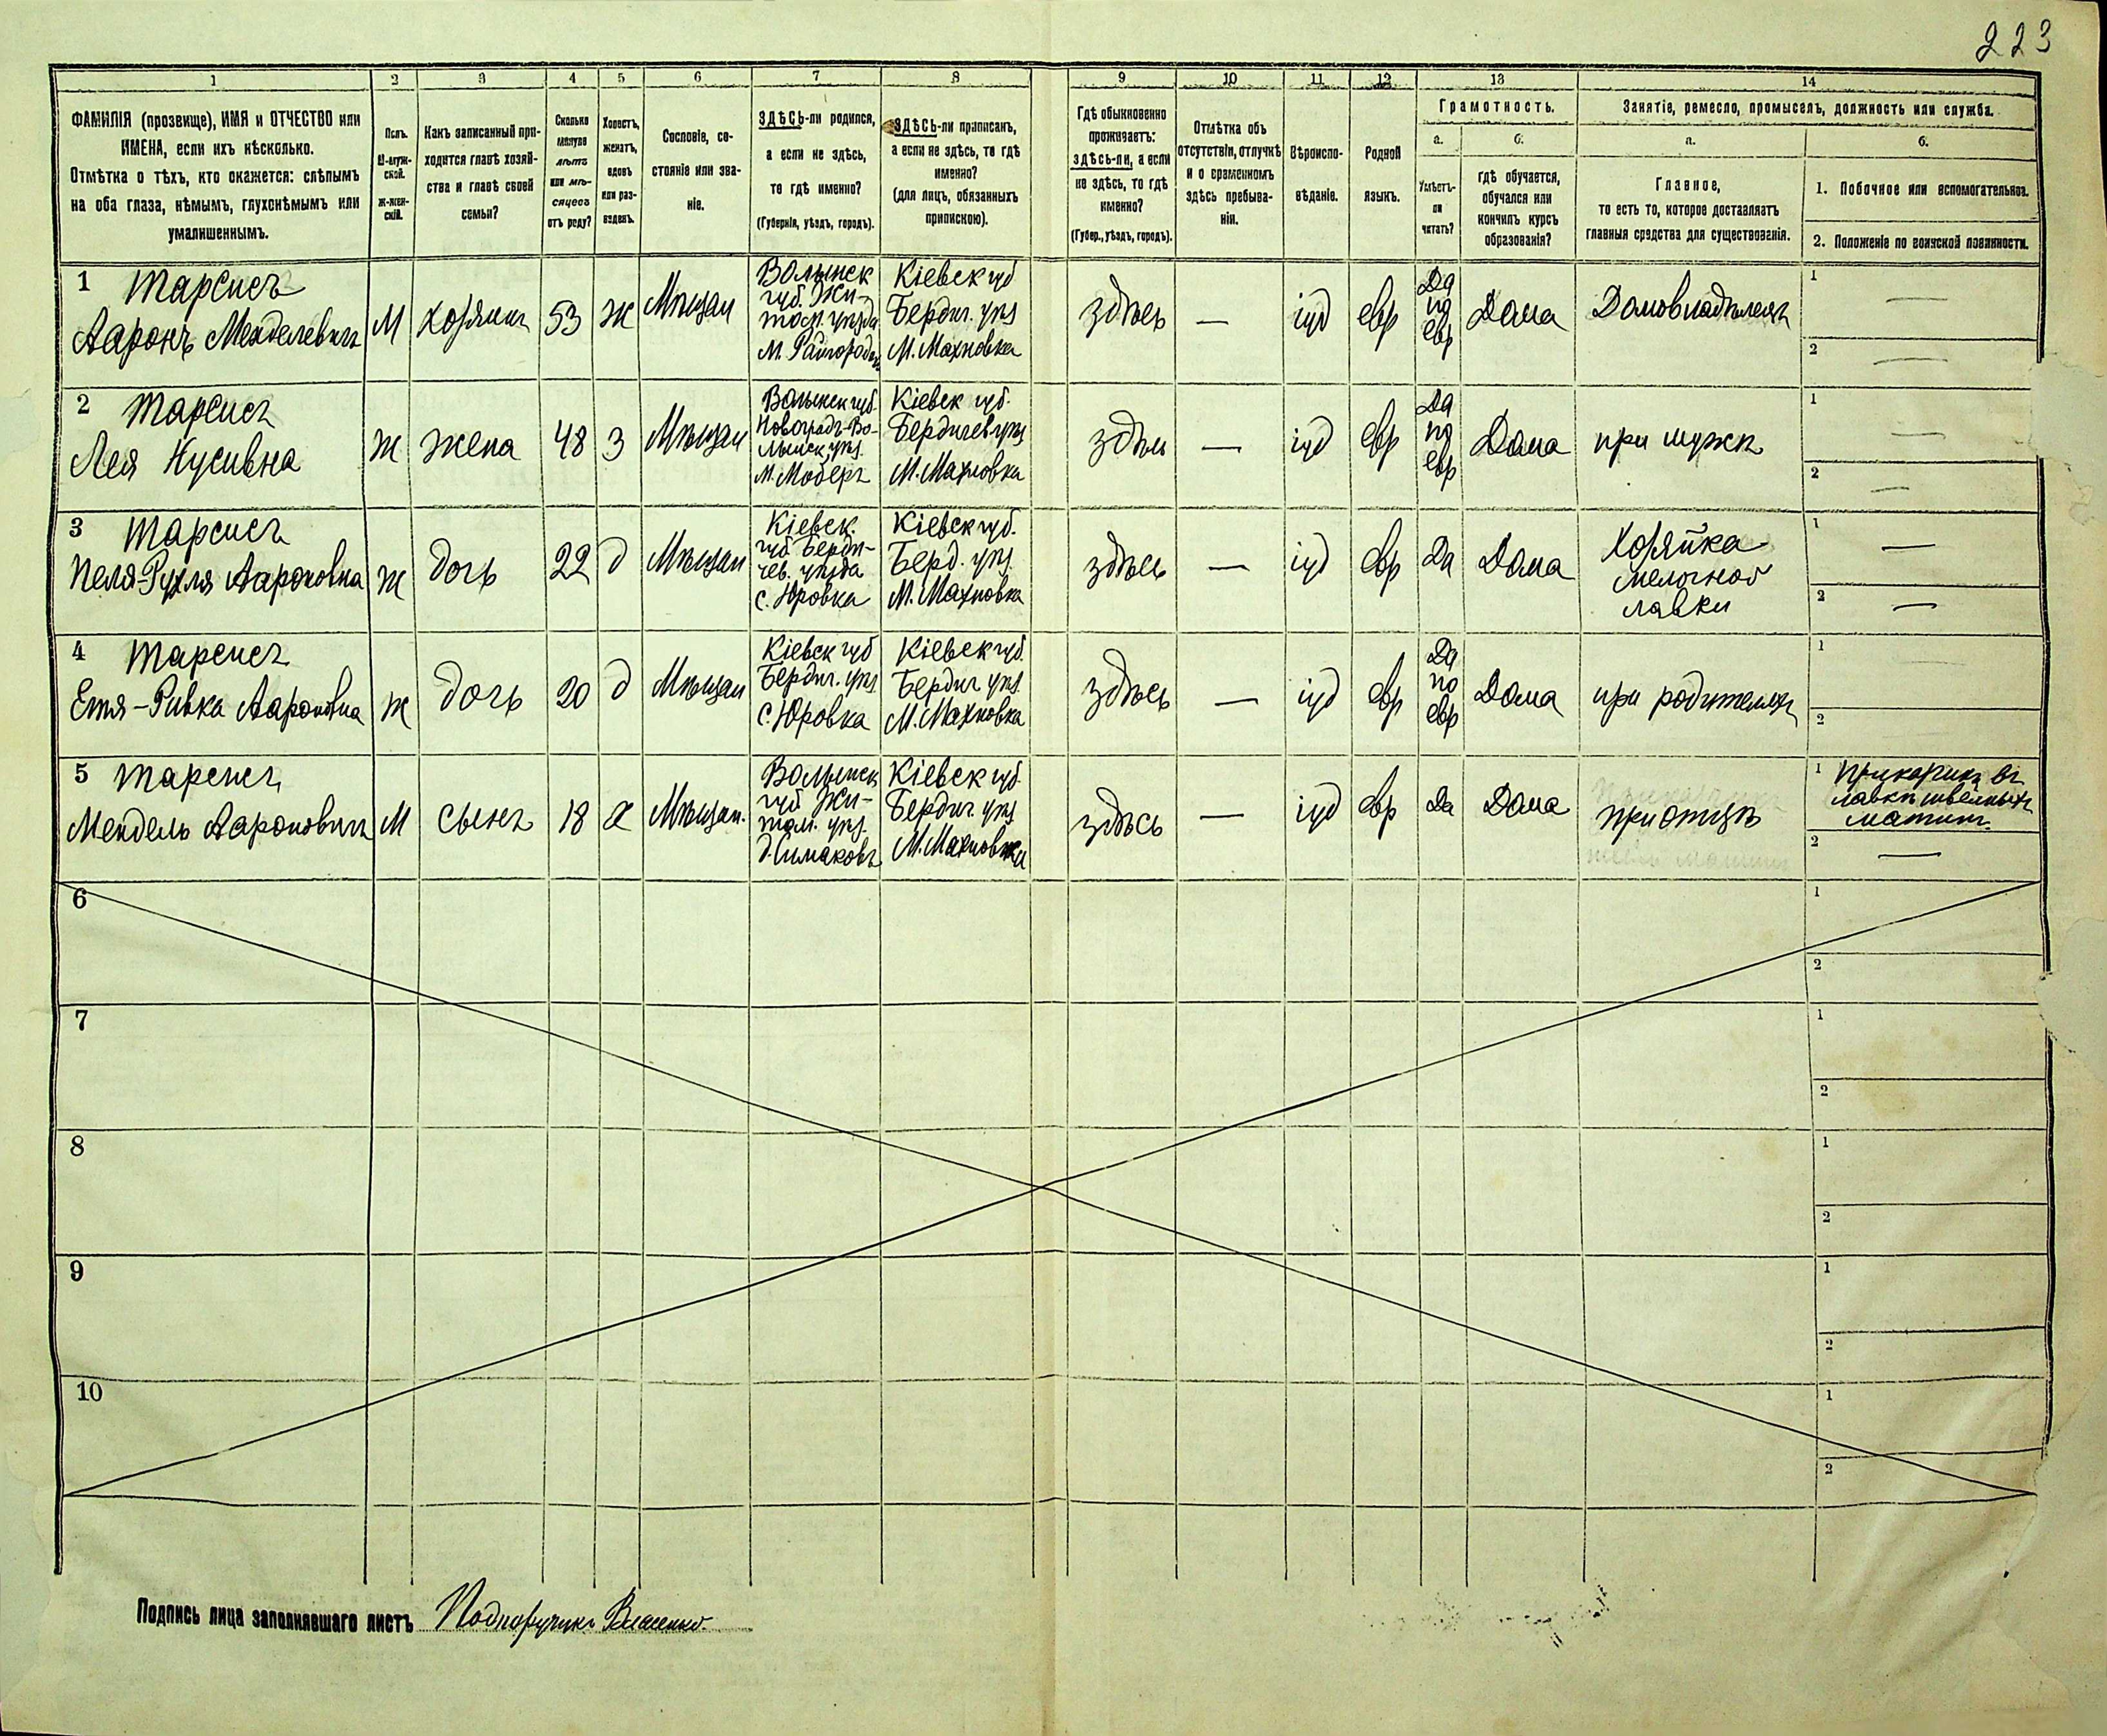 223
1
2
3
4
5
6
7
8
9
10
11
12
13
14
ФАМИЛІЯ (прозвище), ИМЯ и ОТЧЕСТВО или
ИМЕНА, если ихъ нѣсколько.
Отмѣтка о тѣхъ, кто окажется: слѣпымъ
на оба глаза, нѣмымъ, глухонѣмымъ или
умалишеннымъ.
Полъ.
М-муж-
ской.
ж-жен-
скій.
Какъ записанный при-
ходится главѣ хозяй-
ства и главѣ своей
семьи?
Сколько
минуло
лѣтъ
или мѣ-
сяцевъ
отъ роду?
Холостъ,
женатъ,
вдовъ
или раз-
веденъ.
Сословіе, со-
стояніе или зва-
ніе.
ЗДѢСЬ-ли родился,
а если не здѣсь,
то гдѣ именно?
(Губернія, уѣздъ, городъ).
ЗДѢСЬ-ли приписанъ,
а если не здѣсь, то гдѣ
именно?
(для лицъ, обязанныхъ
припискою).
Гдѣ обыкновенно
проживаетъ:
здѣсь-ли, а если
не здѣсь, то гдѣ
именно?
(Губер., уѣздъ, городъ).
Отмѣтка объ
отсутствіи, отлучкѣ
и о временномъ
здѣсь пребыва-
ніи.
Вѣроиспо-
вѣданіе.
Родной
языкъ.
Грамотность.
а.
Умѣетъ-
ли
читать?
б.
гдѣ обучается,
обучался или
кончилъ курсъ
образованія?
Занятіе, ремесло, промыселъ, должность или служба.
а.
Главное,
то есть то, которое доставляетъ
главныя средства для существованія.
б.
1. Побочное или вспомогательное.
2. Положеніе по воинской повинности.
1 Тарсисъ
Ааронъ Менделевичъ
М
хозяинъ
53
ж
Мѣщан
Волынск
губ. Жи-
том. уѣзда
М. Райгородокъ
Кіевск губ
Бердич. уѣз
М. Махновка
здѣсь
—
іуд
евр
Да
по
евр
Дома
Домовладѣлецъ
1 —
2 —
2 Тарсисъ
Лея Нусивна
Ж
жена
48
З
Мѣщан
Волынск губ.
Новоградъ-Во-
лынск уѣз.
М.
Кіевск губ.
Бердичев уѣз
М. Махновка
здѣсь
—
іуд
евр
Да
по
евр
Дома
при мужѣ
1 —
2 —
3 Тарсисъ
Рухля Аароновна
ж
дочь
22
д
Мѣщан
Кіевск.
губ. Берди-
чев. уѣзда
с. Юровка
Кіевск губ.
Берд. уѣз.
М. Махновка
здѣсь
—
іуд
евр
Да
Дома
Хозяйка
мелочной
лавки
1 —
2 —
4 Тарсисъ
Етя-Ривка Аароновна
ж
дочь
20
д
Мѣщан
Кіевск губ
Бердич. уѣз.
с. Юровка
Кіевск губ.
Бердич уѣз.
М. Махновка
здѣсь
—
іуд
евр
Да
по
евр
Дома
при родителяхъ
1
2
5 Тарсисъ
Мендель Аароновичъ
М
сынъ
18
х
Мѣщан.
Волынск
губ Жи-
том. уѣз.
Кіевск губ.
Бердич. уѣз
М. Махновка
здѣсь
—
іуд
евр
Да
Дома
при отцѣ
1 Прикащикъ въ
лавкѣ швейныхъ
машин.
2 —
6
1
2
7
1
2
8
1
2
9
1
2
10
1
2
Подпись лица заполнявшаго листъ Подпоручикъ Власенко.